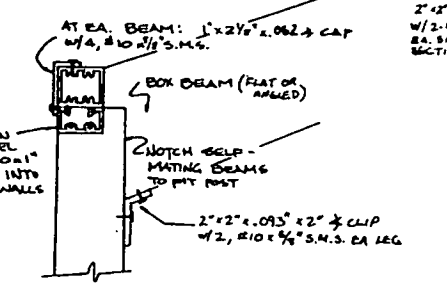 AT EA. BEAM: 1"x2⅛"x.062 ∡ CLIP
W/4, #10x⅝" S.M.S.
BOX BEAM (FLAT OR
ANGLED)
NOTCH SELF-
MATING BEAMS
TO FIT POST
2"x2"x.093"x2" ∡ CLIP
W/2, #10x⅝" S.M.S. EA LEG
N
EL
0x1"
INTO
WALLS
2"x2"
W/2-
EA. S
SECTI